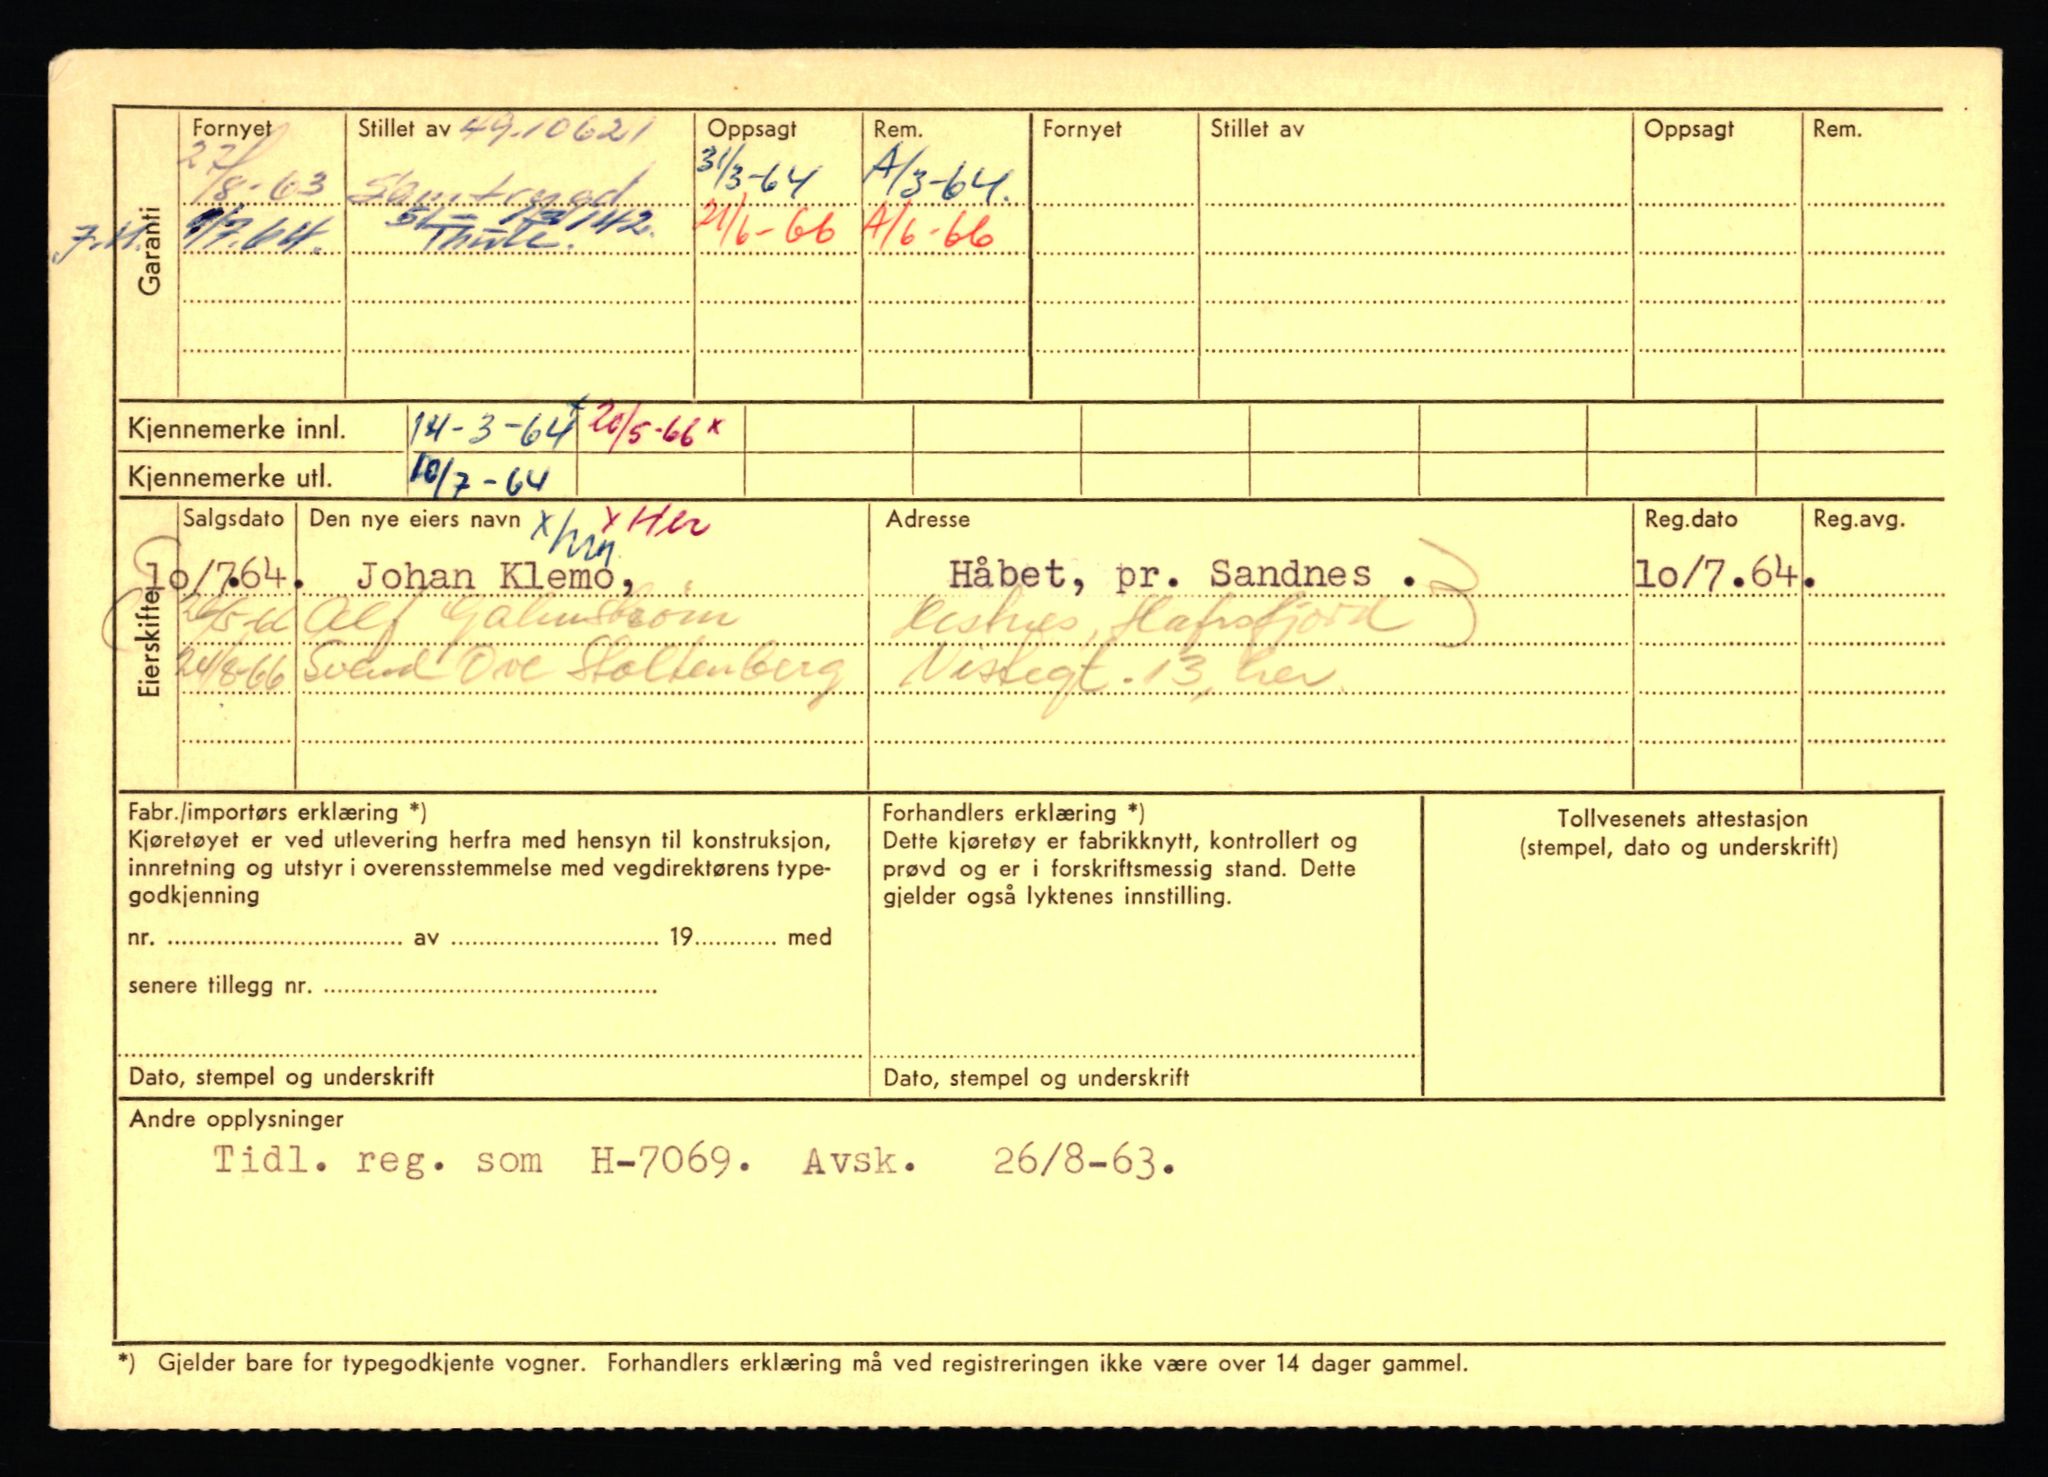 Garanti
Fornyet Stillet av 49.10621 Oppsagt Rem. Fornyet Stillet av Oppsagt Rem.
27/8-63 Samtrygd 31/3-64 A/3-64.
7.64. 142. Thule. 21/6-66 A/6-66
Kjennemerke innl. 14-3-64 x 20/5-66 x
Kjennemerke utl. 10/7-64
Eierskifte
Salgsdato Den nye eiers navn x x Her Adresse Reg.dato Reg.avg.
10/7.64. Johan Klemo, Håbet, pr. Sandnes . 10/7.64.
Alf Hafrsfjord
24/8-66 Svend Ove Stoltenberg Vistegt. 13, her.
Fabr./importørs erklæring *)
Kjøretøyet er ved utlevering herfra med hensyn til konstruksjon,
innretning og utstyr i overensstemmelse med vegdirektørens type-
godkjenning
nr. .......... av .......... 19.......... med
senere tillegg nr. ..........
Dato, stempel og underskrift
Forhandlers erklæring *)
Dette kjøretøy er fabrikknytt, kontrollert og
prøvd og er i forskriftsmessig stand. Dette
gjelder også lyktenes innstilling.
Dato, stempel og underskrift
Tollvesenets attestasjon
(stempel, dato og underskrift)
Andre opplysninger
Tidl. reg. som H-7069. Avsk. 26/8-63.
*) Gjelder bare for typegodkjente vogner. Forhandlers erklæring må ved registreringen ikke være over 14 dager gammel.